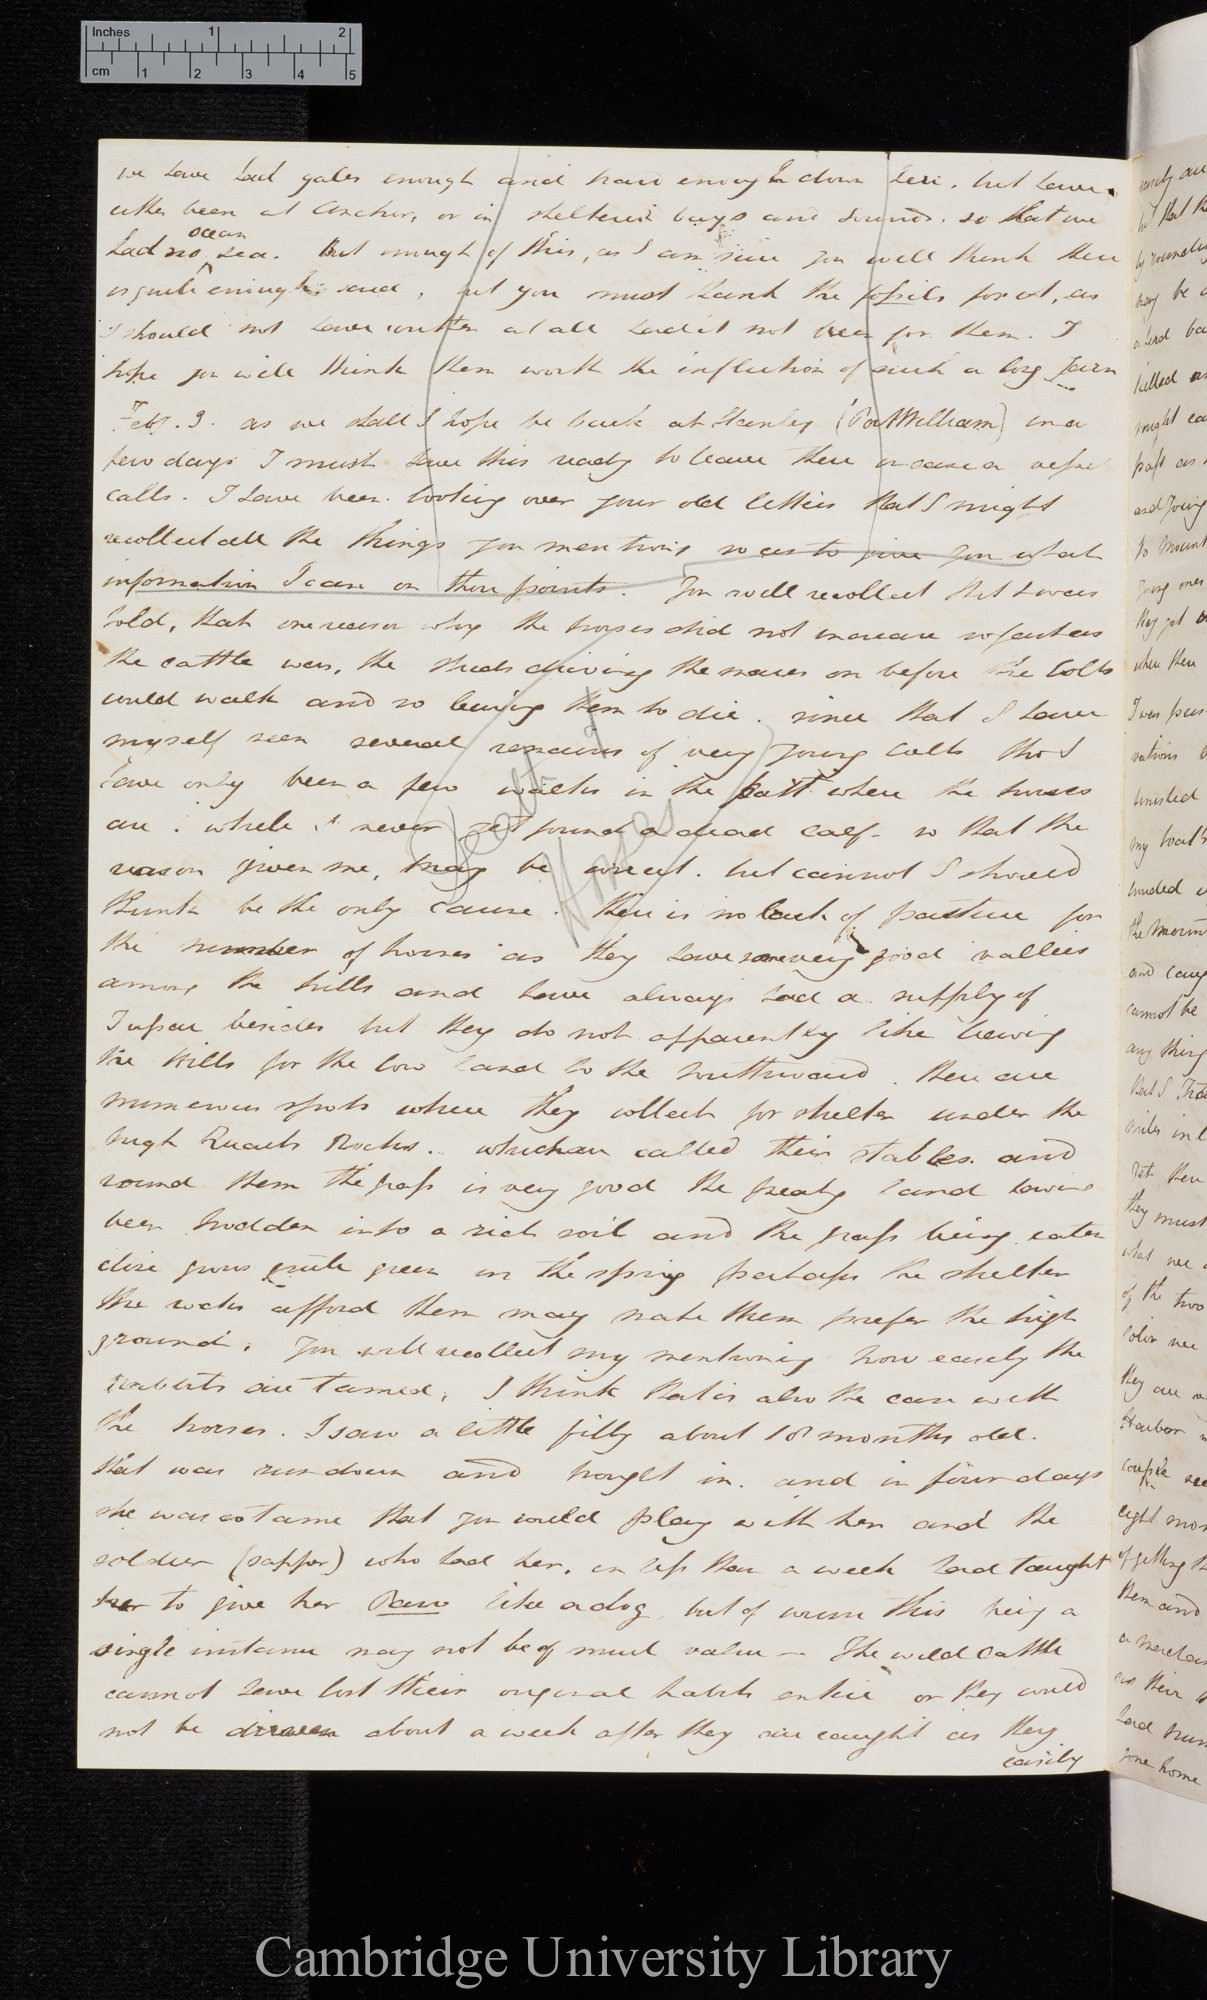 Inches 1 2
cm 1 2 3 4 5
we have had gales enough and hard enough down here, but have
either been at anchor, or in sheltered bays and sounds. so that we
ocean
had no sea. But enough of this, as I am sure you will think there
is quite enough said, but you must thank the fossils for it, as
I should not have written at all had it not been for them. I
hope you will think them worth the infliction of such a long yarn
Feby. 3. as we shall I hope be back at Stanley (Port William) in a
few days I must have this ready to leave there in case a vessel
calls. I have been looking over your old letters that I might
recollect all the things you mentions so as to give you what
information I can on those points. You will recollect that I was
told, that one reason why the horses did not increase so fast as
the cattle was, the studs driving the mares on before the colts
could walk and so leaving them to die. since that I have
myself seen several remains of very young colts tho I
have only been a few walks in the part where the horses
are. while I never yet found a dead calf. so that the
reason given me, may be correct. but cannot I should
think be the only cause. there is no lack of pasture for
the number of horses as they have some very good vallies
among the hills and have always had a supply of
Tussac besides but they do not apparently like leaving
the Hills for the low land to the southward. there are
numerous spots where they collect for shelter under the
high Quartz Rocks. which are called their stables and
round them the grass is very good the peaty land having
been trodden into a rich soil and the grass being eaten
close grows quite green in the spring perhaps the shelter
the rocks afford them may make them prefer the high
ground. You will recollect my mentioning how easily the
Rabbits are tamed, I think that is also the case with
the horses. I saw a little filly about 18 months old.
that was run down and brought in. and in four days
she was so tame that you could play with her and the
soldier (sapper) who had her, in less than a week had taught
her to give her Paw like a dog, but of course this being a
single instance may not be of much value — The wild cattle
cannot have lost their original habits entire or they could
not be driven about a week after they are caught as they
easily
Cattle
Horses
Cambridge University Library